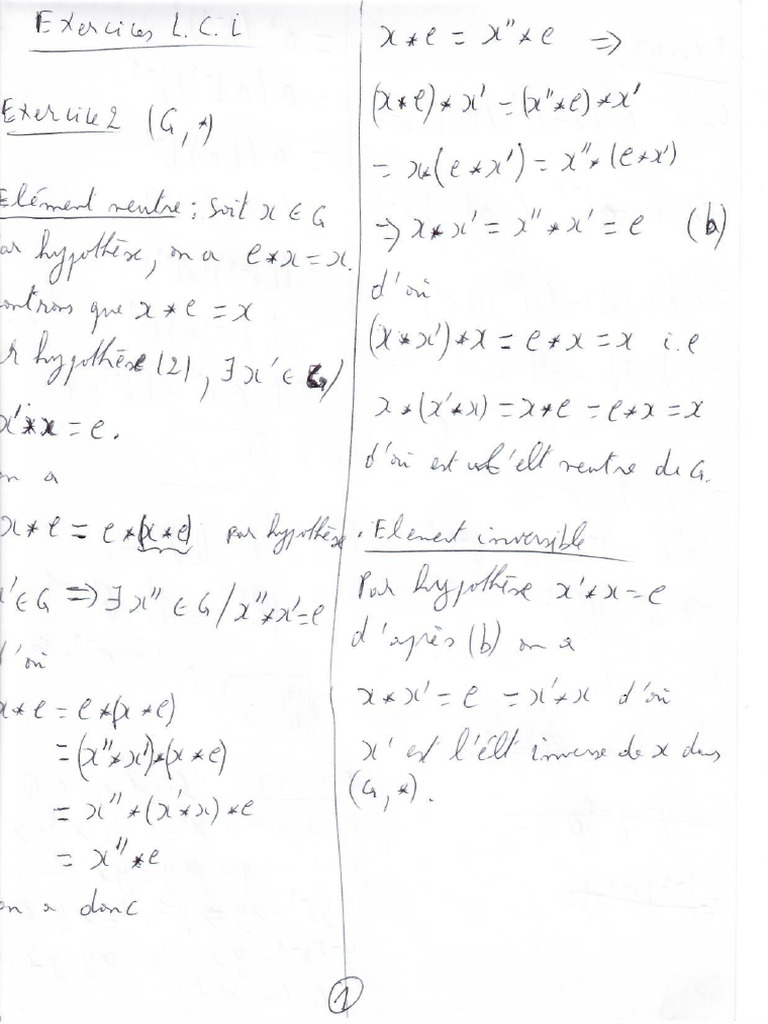 Exercices L.C.I
Exercice 2 (G, *)
Elément neutre : soit x ∈ G
ar hypothèse, on a e*x = x.
ontrons que x * e = x
r hypothèse (2), ∃ x' ∈ G /
x'*x = e.
n a
x*e = e*(x*e) par hypothèse.
x'∈G ⇒ ∃ x'' ∈ G / x''*x'=e
d'où
x*e = e*(x*e)
= (x''*x')*(x*e)
= x''*(x'*x)*e
= x''*e
on a donc
x*e = x''*e ⇒
(x*e)*x' = (x''*e)*x'
= x*(e*x') = x''*(e*x')
⇒ x*x' = x''*x' = e (b)
d'où
(x*x')*x = e*x = x i.e
x*(x'*x) = x*e = e*x = x
d'où est l'élt neutre de G.
Element inversible
Par hypothèse x'*x = e
d'après (b) on a
x*x' = e = x'*x d'où
x' est l'élt inverse de x dans
(G, *).
1